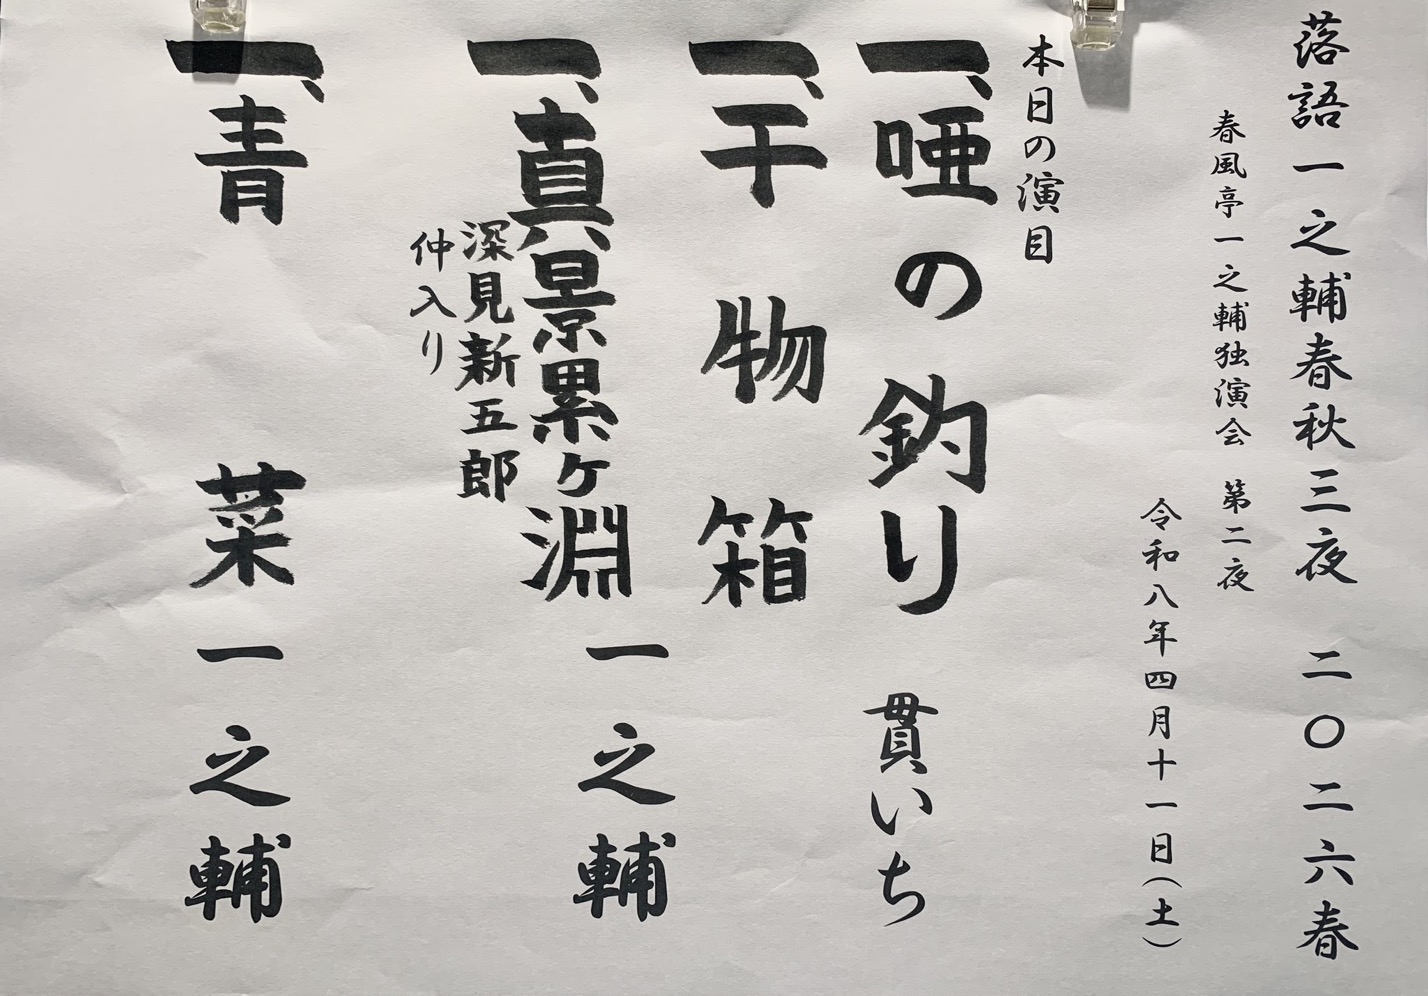 落語一之輔春秋三夜 二〇二六春
春風亭一之輔独演会 第二夜
令和八年四月十一日(土)
本日の演目
一、唖の釣り 貫いち
一、干物箱
一、真景累ヶ淵 一之輔
深見新五郎
仲入り
一、青菜 一之輔